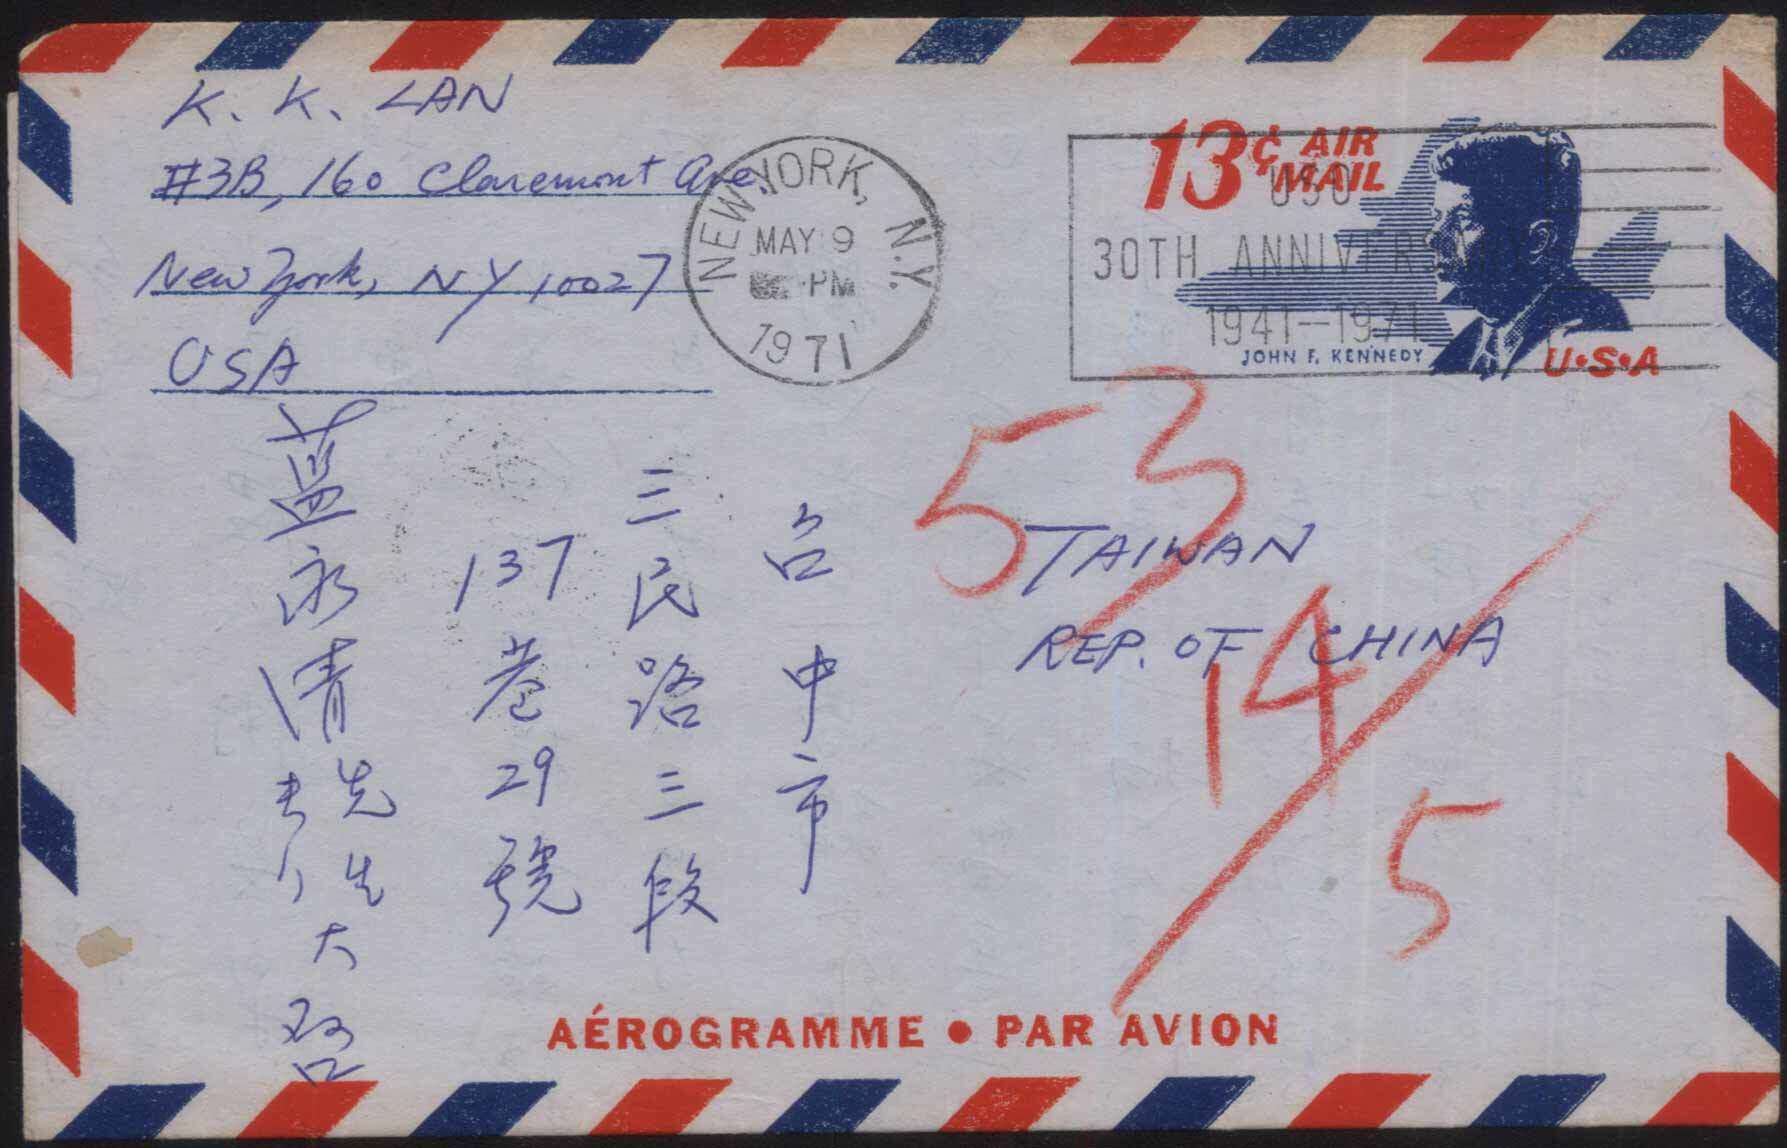 K. K. LAN
#3B, 160 Claremont Ave.
New York, NY 10027
USA
NEW YORK, N.Y.
MAY 9
PM
1971
13¢ AIR MAIL
USO
30TH ANNIVERSARY
1941-1971
JOHN F. KENNEDY
U•S•A
53
TAIWAN
REP. OF CHINA
14/5
台中市
三民路三段
137巷29號
藍永清先生大啓
AÉROGRAMME • PAR AVION